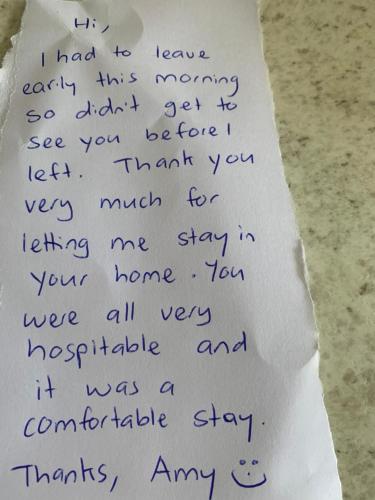 Hi,
I had to leave
early this morning
so didn't get to
see you before I
left. Thank you
very much for
letting me stay in
your home. You
were all very
hospitable and
it was a
comfortable stay.
Thanks, Amy